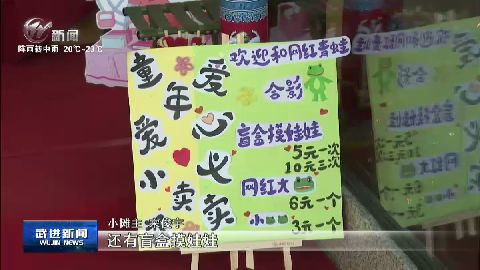 新闻
阵雨转中雨 20℃-23℃
童年爱小
爱心义卖
卖
欢迎和网红青蛙
合影
盲盒摸娃娃
5元一次
10元三次
网红大
6元一个
小
3元一个
武进新闻
WUJIN NEWS
小摊主
还有盲盒摸娃娃